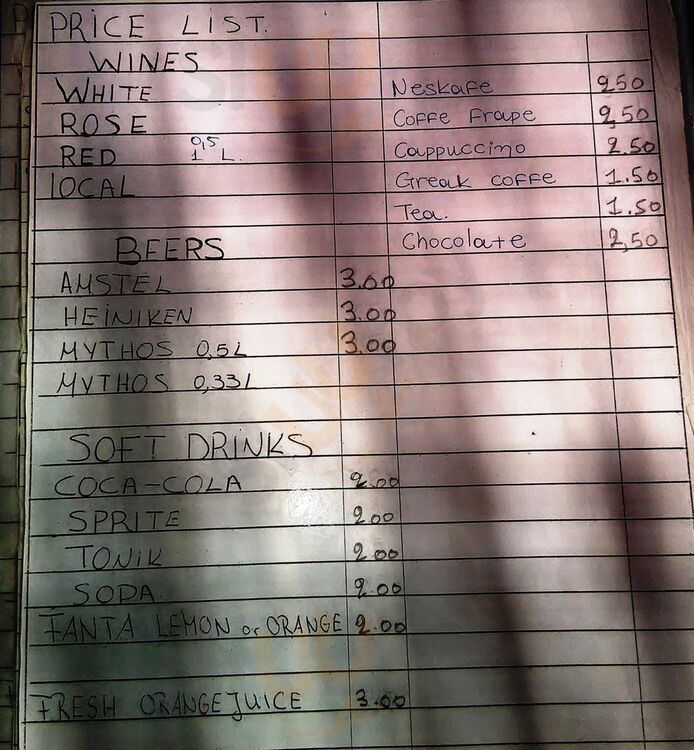 PRICE LIST.
WINES
WHITE
ROSE
RED 0,5 1 L.
LOCAL
BEERS
AMSTEL 3.00
HEINIKEN 3.00
MYTHOS 0,5L 3.00
MYTHOS 0,33L
SOFT DRINKS
COCA-COLA 2.00
SPRITE 2.00
TONIK 2.00
SODA 2.00
FANTA LEMON or ORANGE 2.00
FRESH ORANGE JUICE 3.00
Neskafe 2.50
Coffe Frape 2.50
Cappuccino 2.50
Greak coffe 1.50
Tea. 1.50
Chocolate 2,50